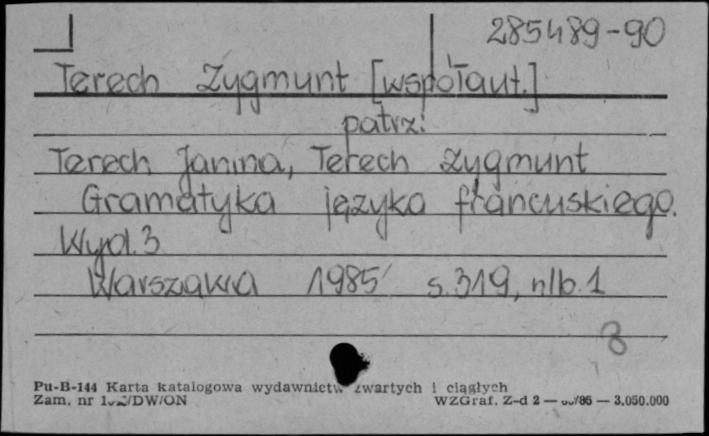 285489-90
Terech Zygmunt [współaut.]
patrz:
Terech Janina, Terech Zygmunt
Gramatyka języka francuskiego.
Wyd. 3
Warszawa 1985 s. 319, nlb. 1
8
Pu-B-144 Karta katalogowa wydawnictw zwartych i ciągłych
Zam. nr /DW/ON WZGraf. Z-d 2 — /86 — 3.050.000